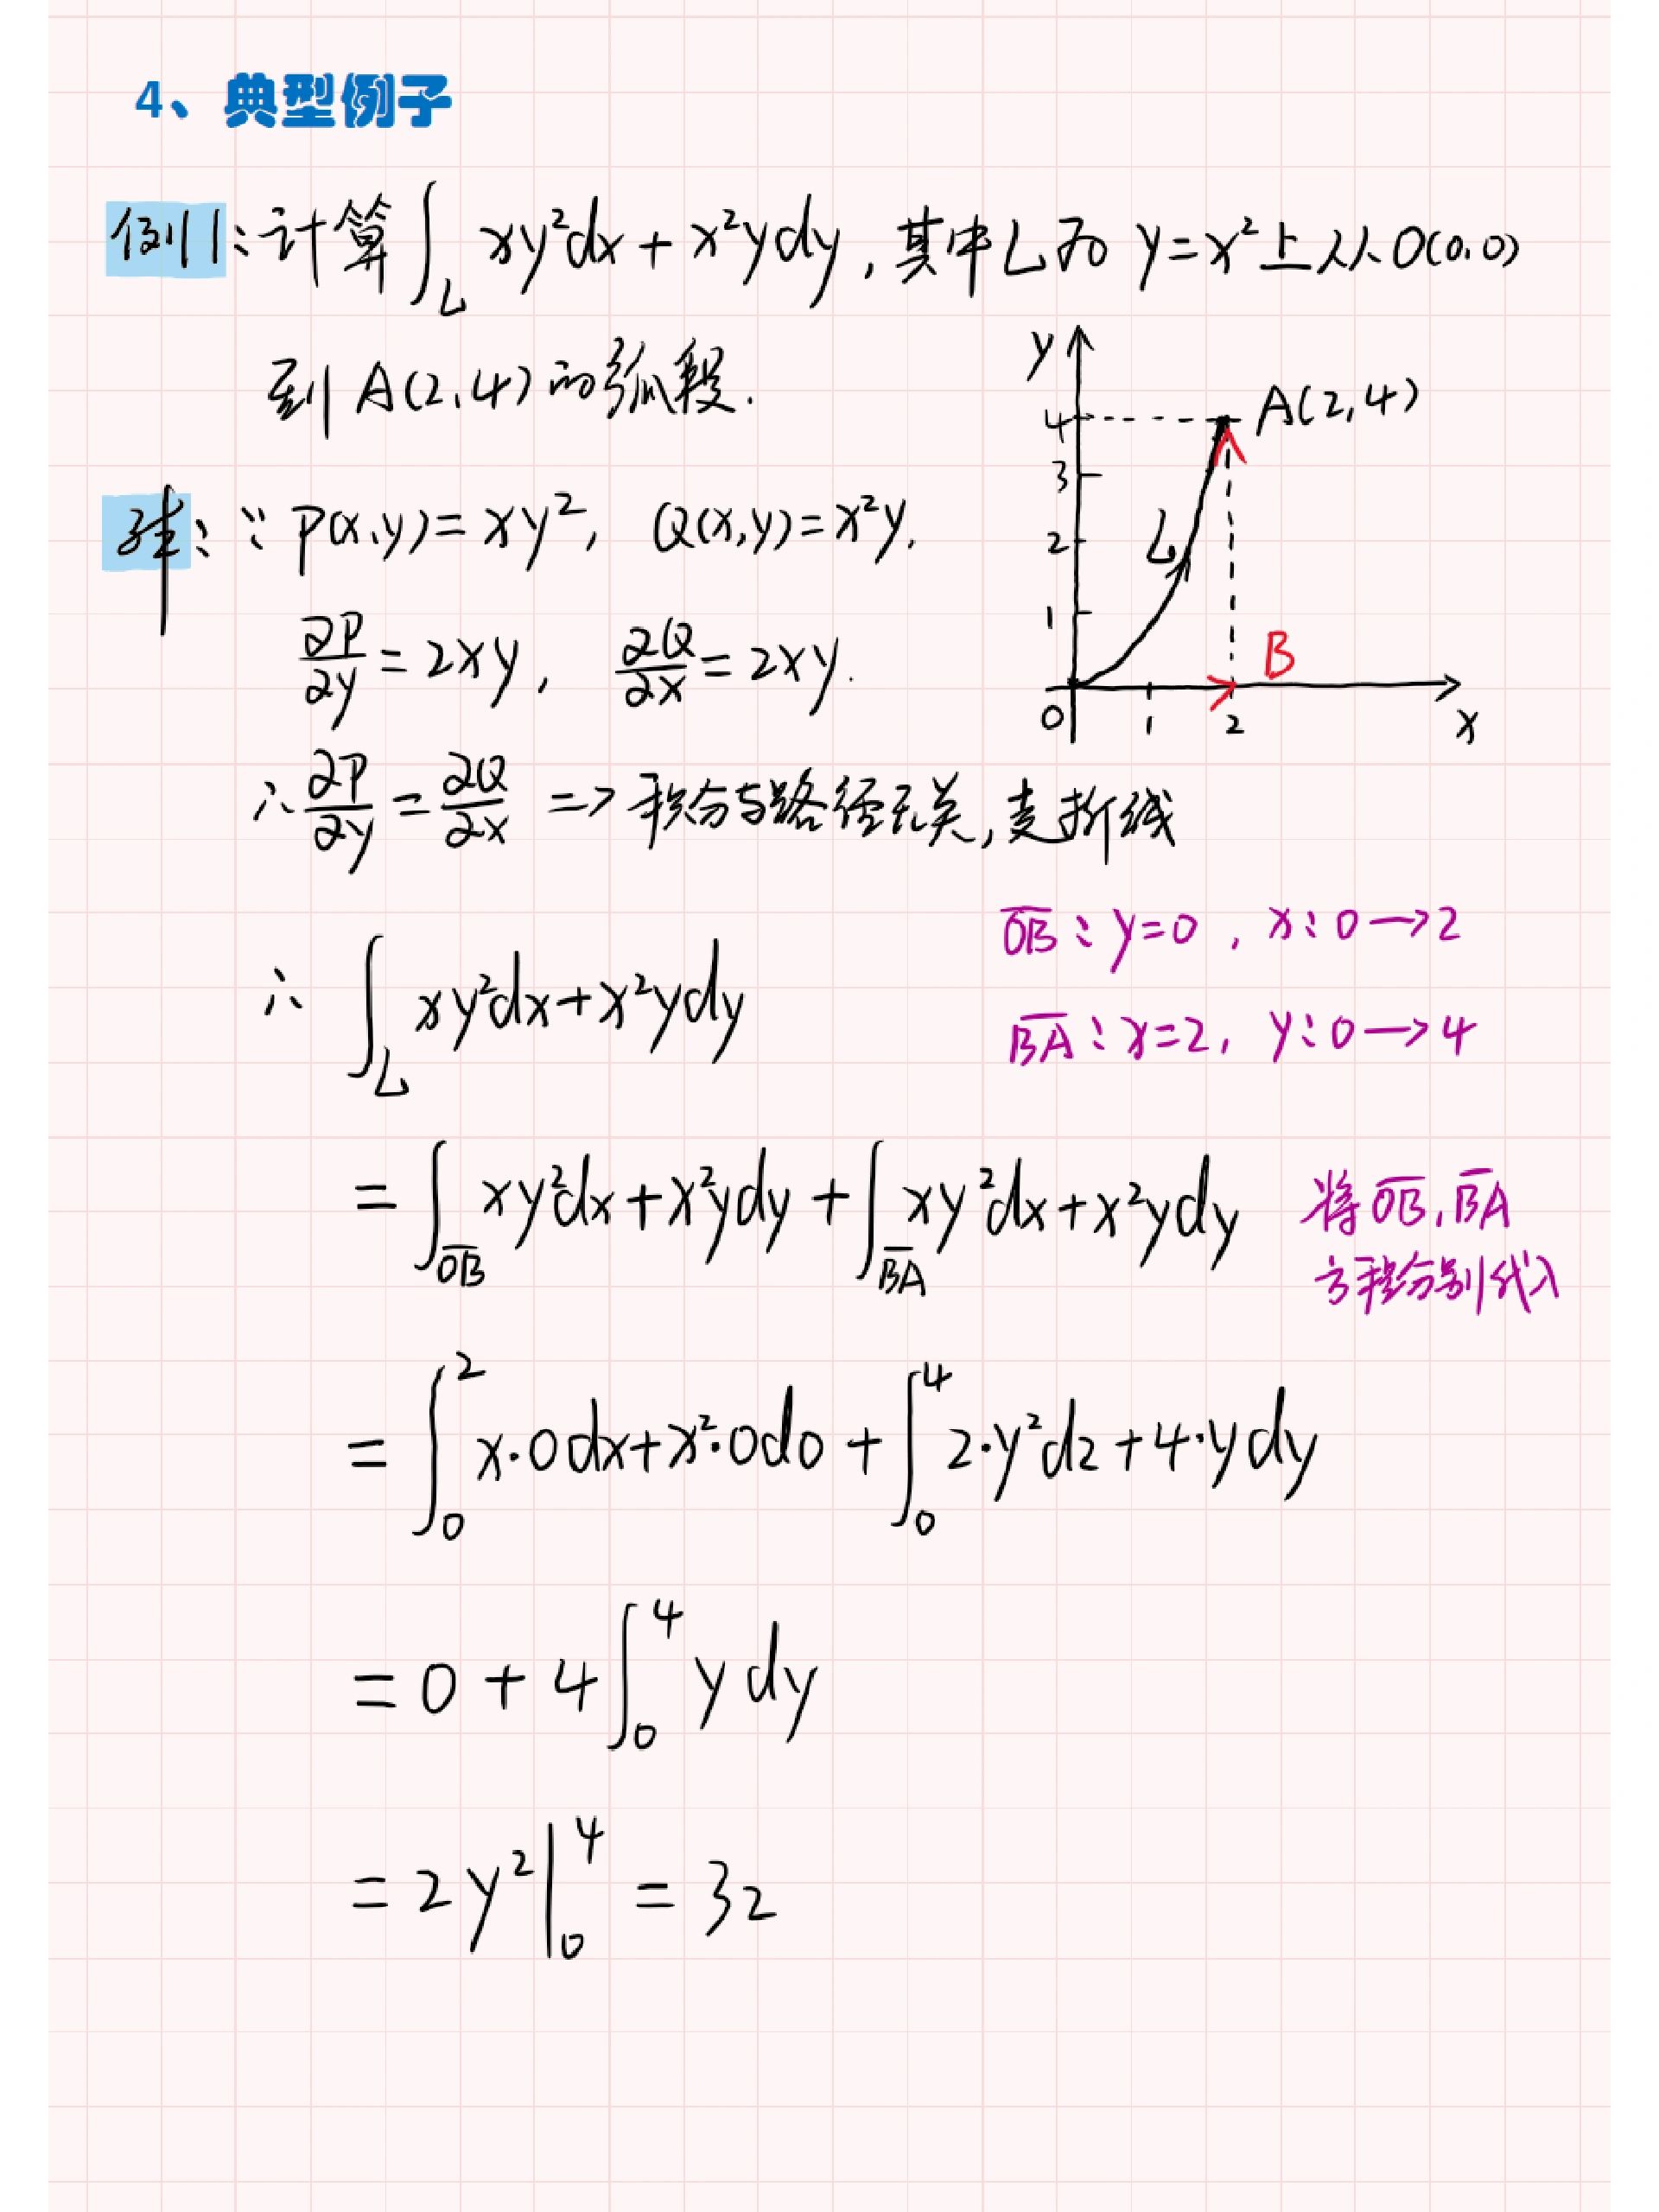 4、典型例子
例1:计算∫_L xy²dx + x²ydy, 其中L为 y=x²上从O(0,0)
到A(2,4)的弧段.
y
4
3
2
1
0
1
2
x
A(2,4)
L
B
解: ∵ P(x,y)=xy², Q(x,y)=x²y,
∂P/∂y = 2xy, ∂Q/∂x = 2xy.
∴ ∂P/∂y = ∂Q/∂x => 积分与路径无关,走折线
O̅B̅: y=0, x: 0→2
B̅A̅: x=2, y: 0→4
∴ ∫_L xy²dx+x²ydy
= ∫_O̅B̅ xy²dx+x²ydy + ∫_B̅A̅ xy²dx+x²ydy
将O̅B̅, B̅A̅
方程分别代入
= ∫₀² x·0dx+x²·0d0 + ∫₀⁴ 2·y²d2+4·ydy
= 0 + 4∫₀⁴ ydy
= 2y²|₀⁴ = 32